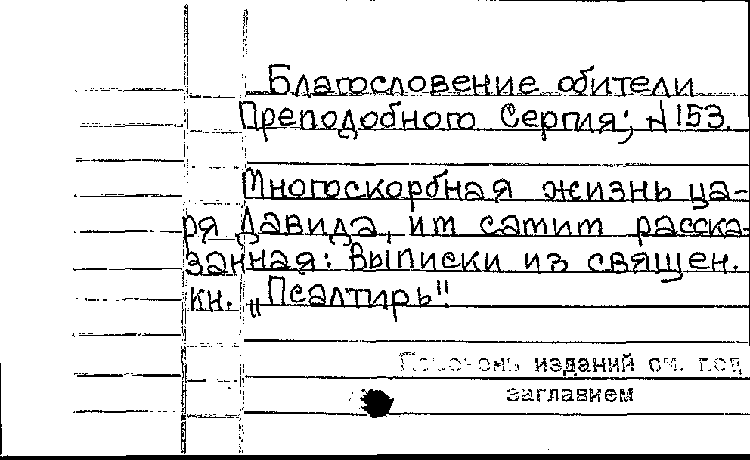 Благословение обители
Преподобного Сергия; N 153.
Многоскорбная жизнь ца-
ря Давида, им самим расска-
занная: Выписки из священ.
кн. „Псалтирь"
Перечень изданий см. под
заглавием